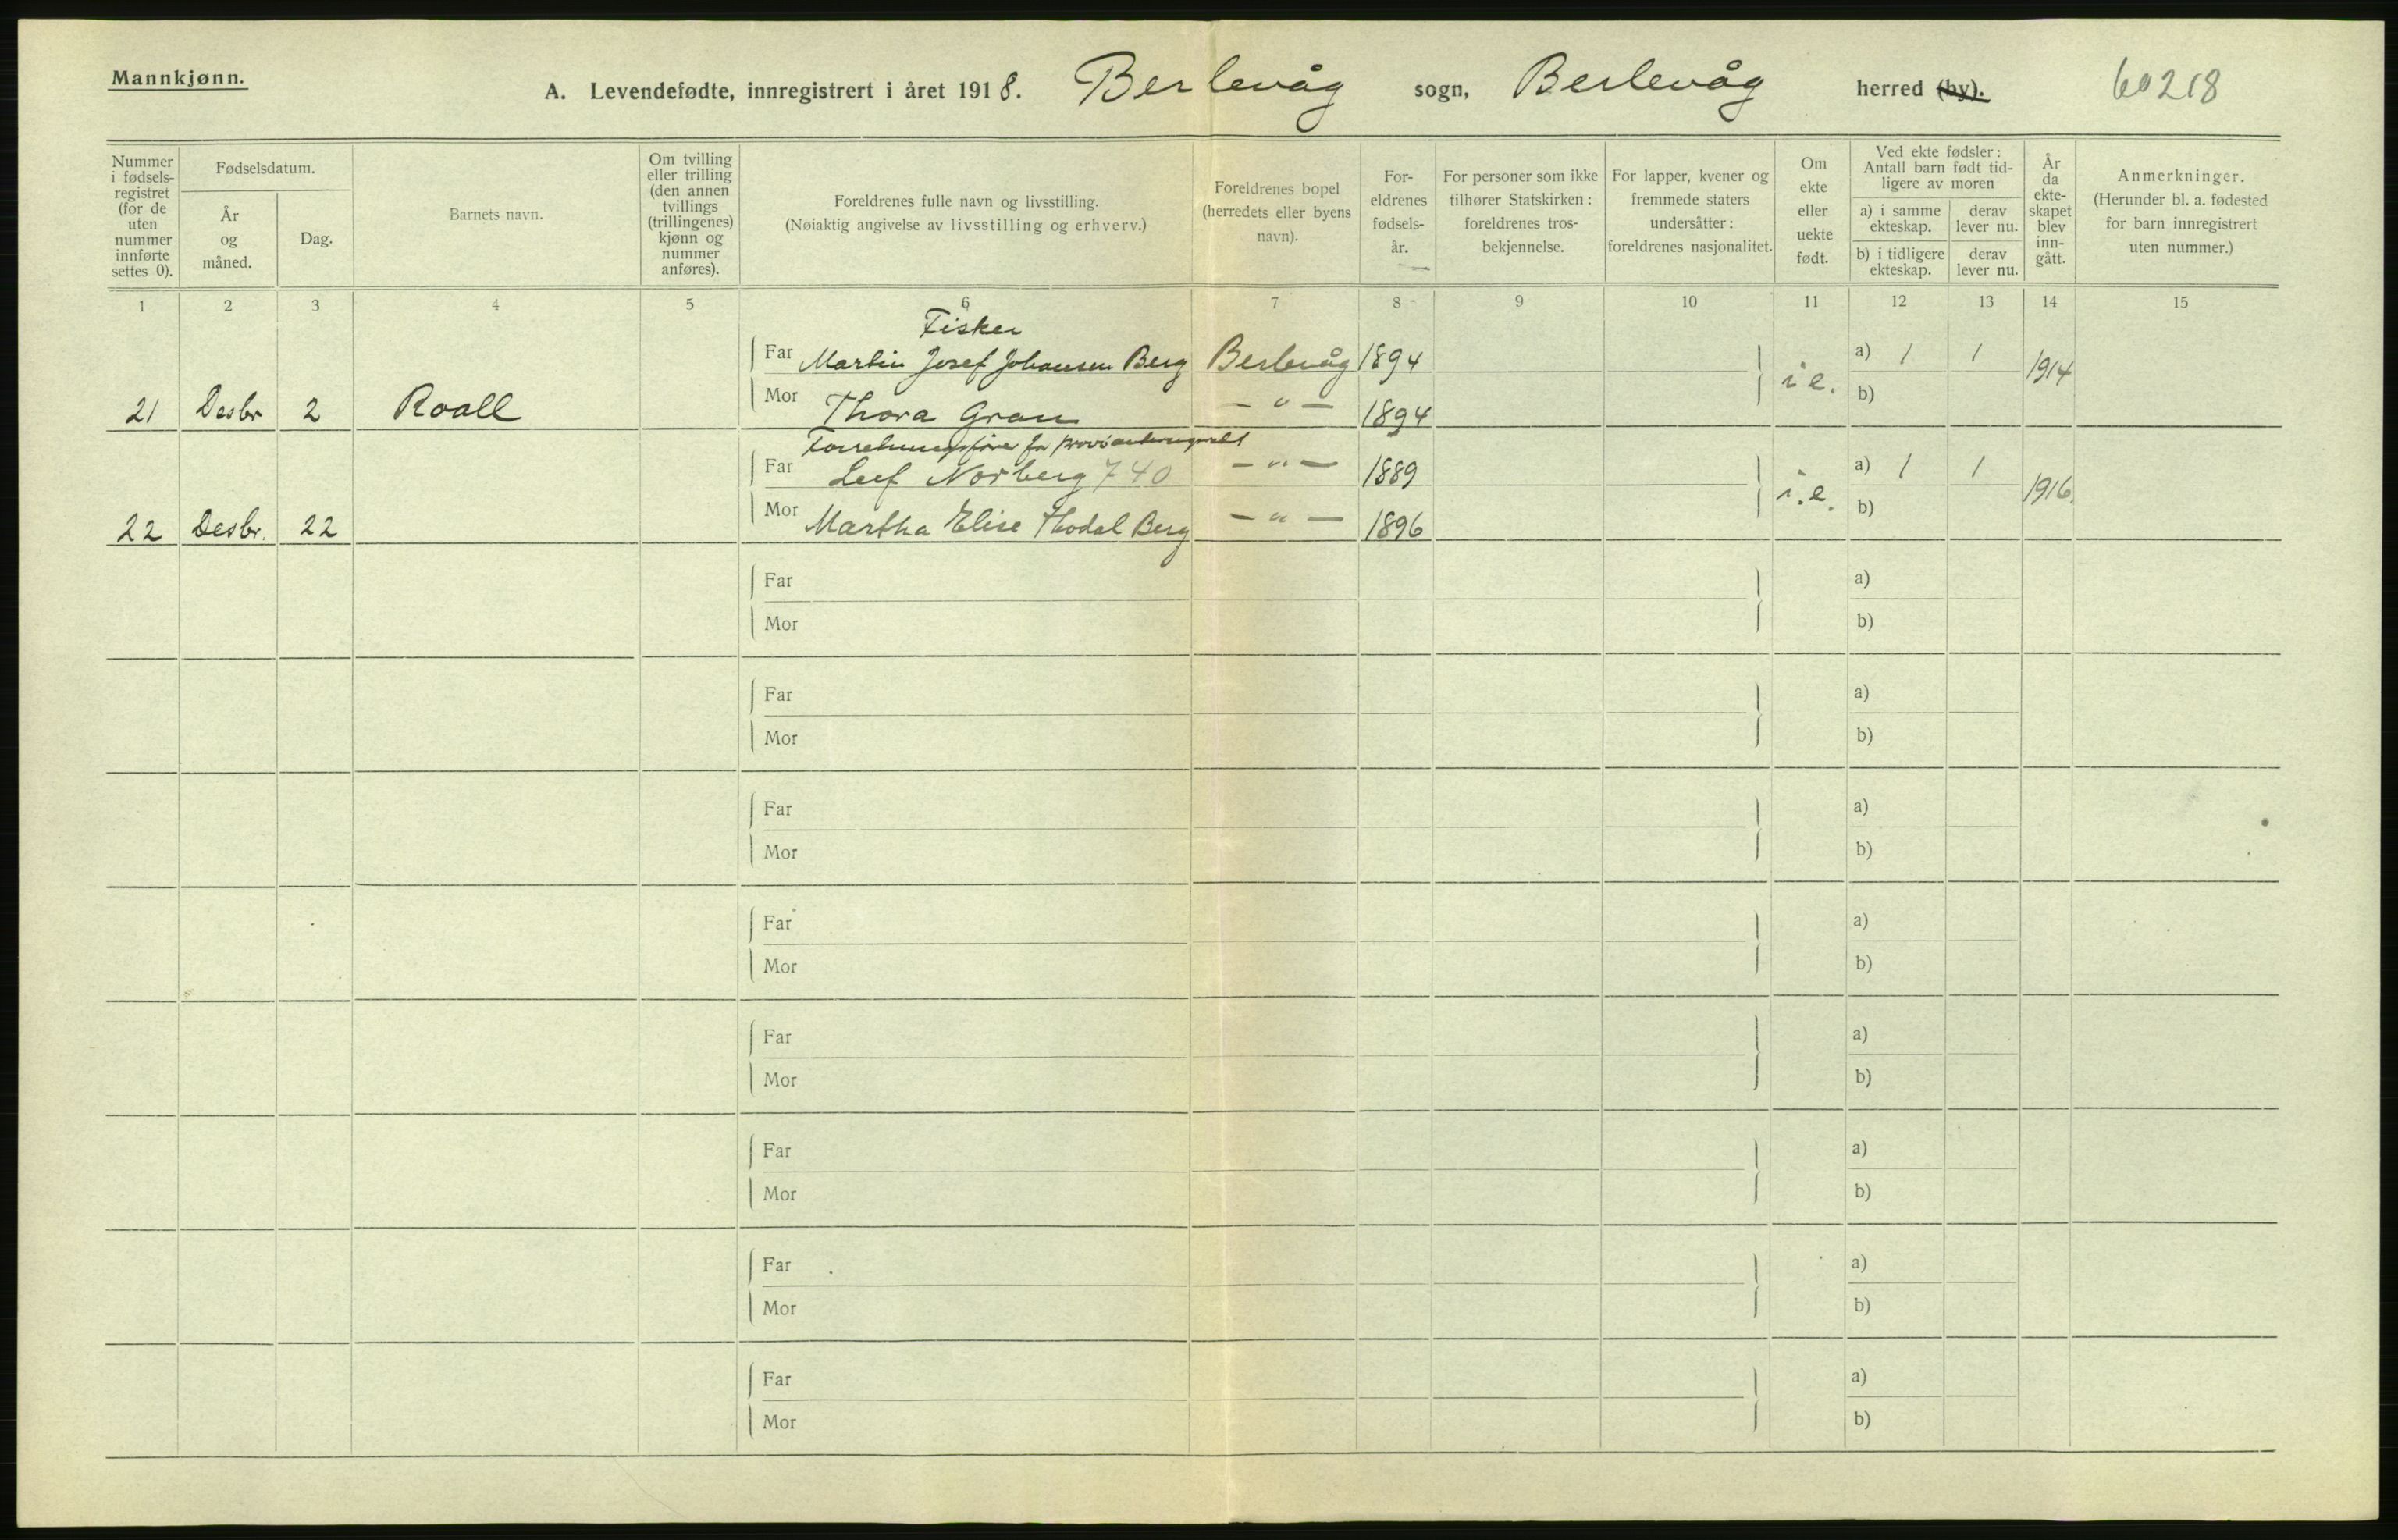 Mannkjønn.
A. Levendefødte, innregistrert i året 1918. Berlevåg sogn, Berlevåg herred (by). 60218
Nummer i fødsels- registret (for de uten nummer innførte settes 0).
Fødselsdatum.
År og måned.
Dag.
Barnets navn.
Om tvilling eller trilling (den annen tvillings (trillingenes) kjønn og nummer anføres).
Foreldrenes fulle navn og livsstilling.
(Nøiaktig angivelse av livsstilling og erhverv.)
Foreldrenes bopel (herredets eller byens navn).
For- eldrenes fødsels- år.
For personer som ikke tilhører Statskirken: foreldrenes tros- bekjennelse.
For lapper, kvener og fremmede staters undersåtter: foreldrenes nasjonalitet.
Om ekte eller uekte født.
Ved ekte fødsler: Antall barn født tid- ligere av moren
a) i samme ekteskap.
derav lever nu.
b) i tidligere ekteskap.
derav lever nu.
År da ekte- skapet blev inn- gått.
Anmerkninger.
(Herunder bl. a. fødested for barn innregistrert uten nummer.)
1 2 3 4 5 6 7 8 9 10 11 12 13 14 15
Fisker
Far Martin Josef Johansen Berg Berlevåg 1894 a) 1 1
21 Desbr 2 Roall Mor Thora Gran — " — 1894 i e. b) 1914
Far Leif Norberg 740 — " — 1889 a) 1 1
22 Desbr. 22 Mor Martha Elise Thodal Berg — " — 1896 i.e. b) 1916.
Far a)
Mor b)
Far a)
Mor b)
Far a)
Mor b)
Far a)
Mor b)
Far a)
Mor b)
Far a)
Mor b)
Far a)
Mor b)
Far a)
Mor b)